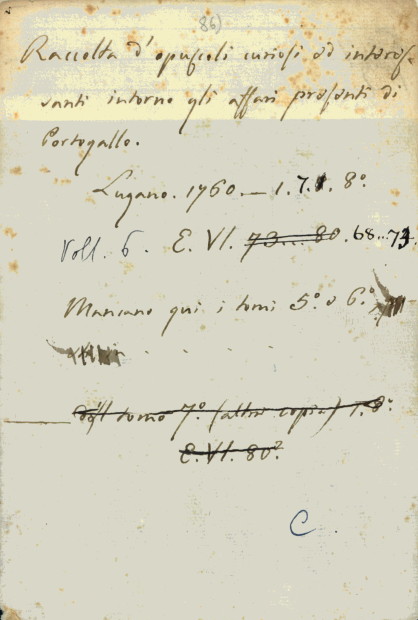 86)
Raccolta d'opuscoli curiosi ed interes-
santi intorno gli affari presenti di
Portogallo.
Lugano. 1760.— 1. 7. 8º.
Voll. 6. E. VI. 73...80. 68..73.
Mancano qui i tomi 5º. e 6º.
tomo 7º (altra copia) 1. 8º
E. VI. 80².
C.